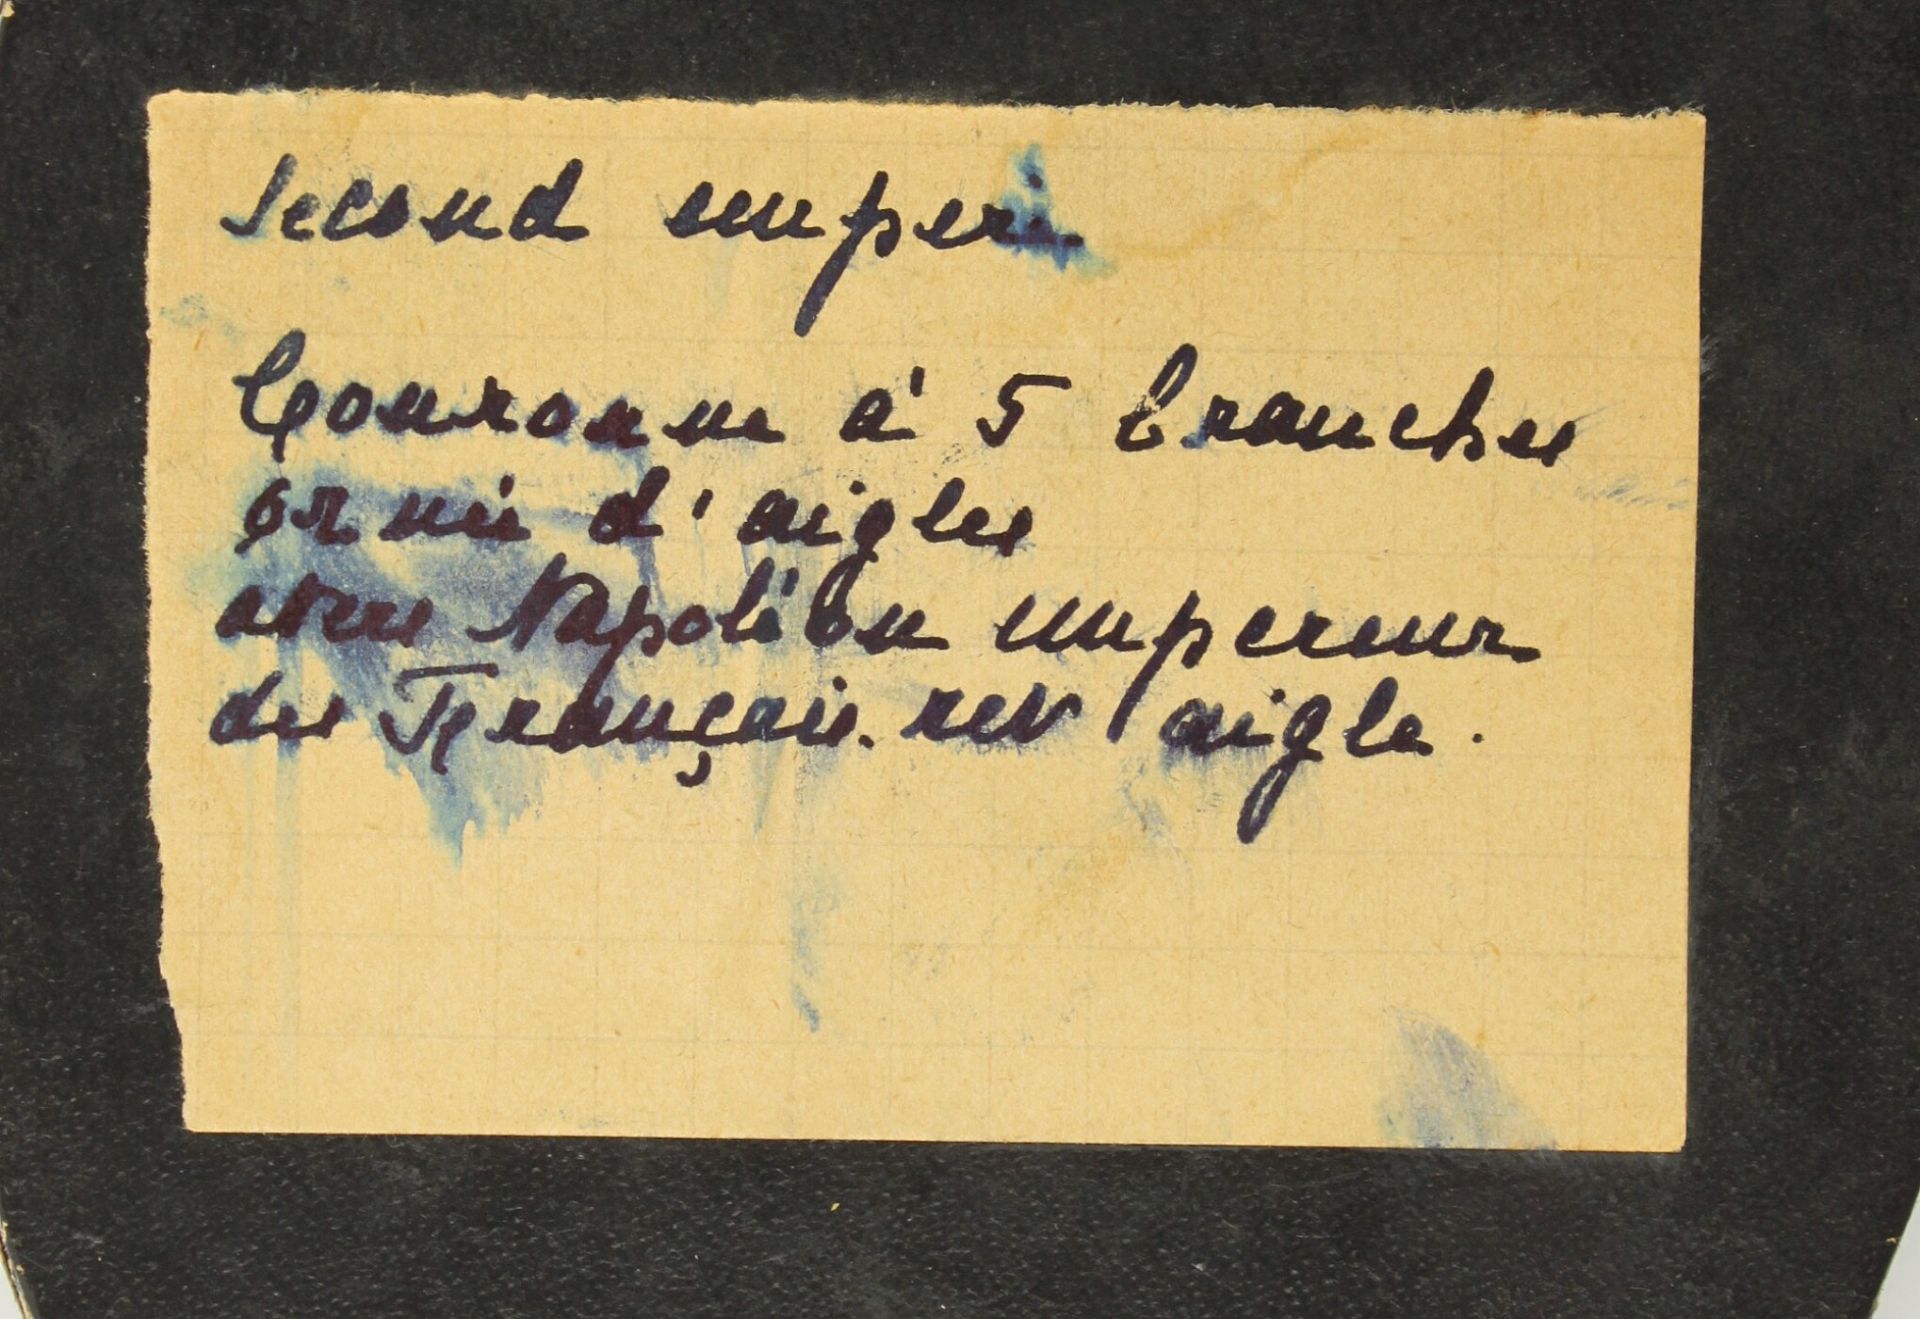 Second empire
Couronne à 5 branches
ornée d'aigles
avers Napoléon empereur
des Français. rev aigle.